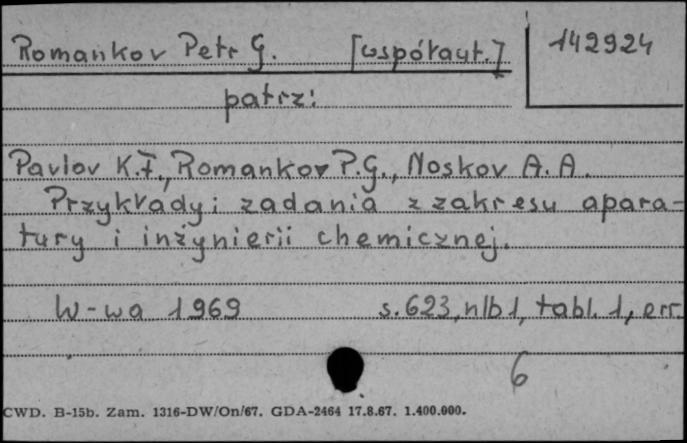 Romankov Petr G. [współaut.] 142924
patrz:
Pavlov K.F., Romankov P.G., Noskov A.A.
Przykłady i zadania z zakresu apara-
tury i inżynierii chemicznej.
W-wa 1969 s. 623, nlb 1, tabl. 1, err.
6
CWD. B-15b. Zam. 1316-DW/On/67. GDA-2464 17.8.67. 1.400.000.